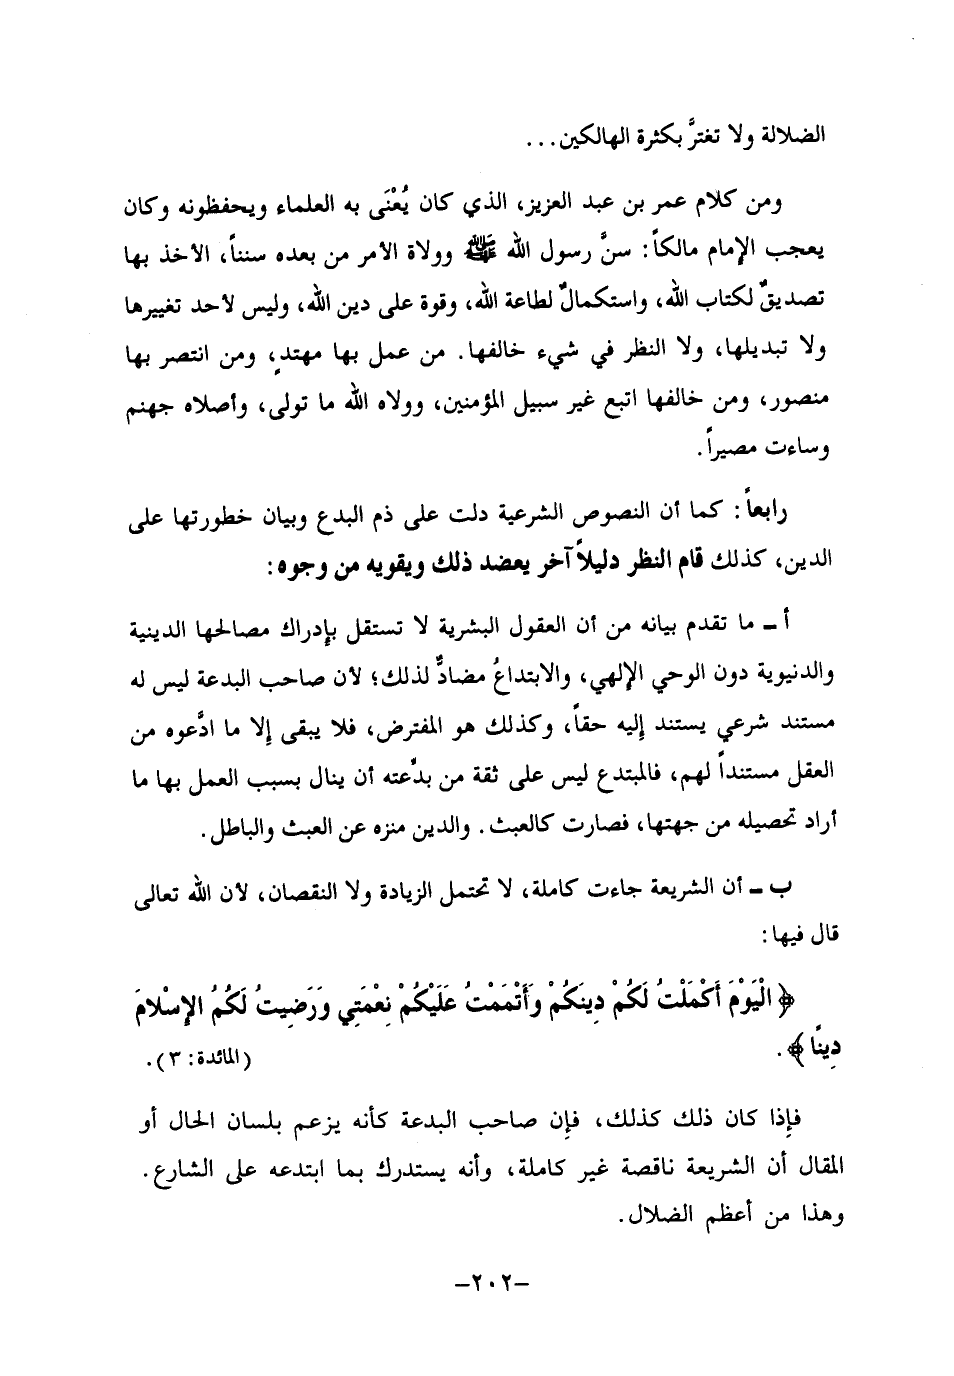 الضلالة ولا تغترَّ بكثرة الهالكين...
ومن كلام عمر بن عبد العزيز، الذي كان يُعْنَى به العلماء ويحفظونه وكان
يعجب الإمام مالكاً: سنَّ رسول الله ﷺ وولاة الأمر من بعده سنناً، الأخذ بها
تصديقٌ لكتاب الله، واستكمالٌ لطاعة الله، وقوة على دين الله، وليس لأحد تغييرها
ولا تبديلها، ولا النظر في شيء خالفها. من عمل بها مهتدٍ، ومن انتصر بها
منصور، ومن خالفها اتبع غير سبيل المؤمنين، وولاه الله ما تولى، وأصلاه جهنم
وساءت مصيراً.
رابعاً: كما أن النصوص الشرعية دلت على ذم البدع وبيان خطورتها على
الدين، كذلك قام النظر دليلاً آخر يعضد ذلك ويقويه من وجوه:
أ ـ ما تقدم بيانه من أن العقول البشرية لا تستقل بإدراك مصالحها الدينية
والدنيوية دون الوحي الإلهي، والابتداعُ مضادٌّ لذلك؛ لأن صاحب البدعة ليس له
مستند شرعي يستند إليه حقاً، وكذلك هو المفترض، فلا يبقى إلا ما ادَّعوه من
العقل مستنداً لهم، فالمبتدع ليس على ثقة من بدْعته أن ينال بسبب العمل بها ما
أراد تحصيله من جهتها، فصارت كالعبث. والدين منزه عن العبث والباطل.
ب ـ أن الشريعة جاءت كاملة، لا تحتمل الزيادة ولا النقصان، لأن الله تعالى
قال فيها:
﴿ الْيَوْمَ أَكْمَلْتُ لَكُمْ دِينَكُمْ وَأَتْمَمْتُ عَلَيْكُمْ نِعْمَتِي وَرَضِيتُ لَكُمُ الإِسْلامَ
دِينًا ﴾. (المائدة: ٣).
فإذا كان ذلك كذلك، فإن صاحب البدعة كأنه يزعم بلسان الحال أو
المقال أن الشريعة ناقصة غير كاملة، وأنه يستدرك بما ابتدعه على الشارع.
وهذا من أعظم الضلال.
–٢٠٢–